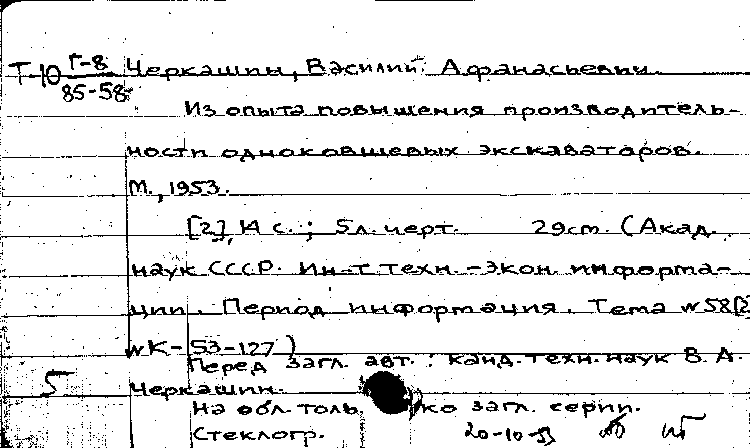 Т-10 Г-8 Черкашин, Василий Афанасьевич.
85-58
Из опыта повышения производитель-
ности одноковшевых экскаваторов.
М., 1953.
[2], 14 с.; 5 л. черт. 29 см. (Акад.
наук СССР. Ин-т техн.-экон. информа-
ции. Период. информация. Тема № 58[2]
№ К-53-127)
Перед загл. авт.: канд. техн. наук В. А.
5 Черкашин.
На обл. толь ко загл. серии.
Стеклогр. 20-10-53